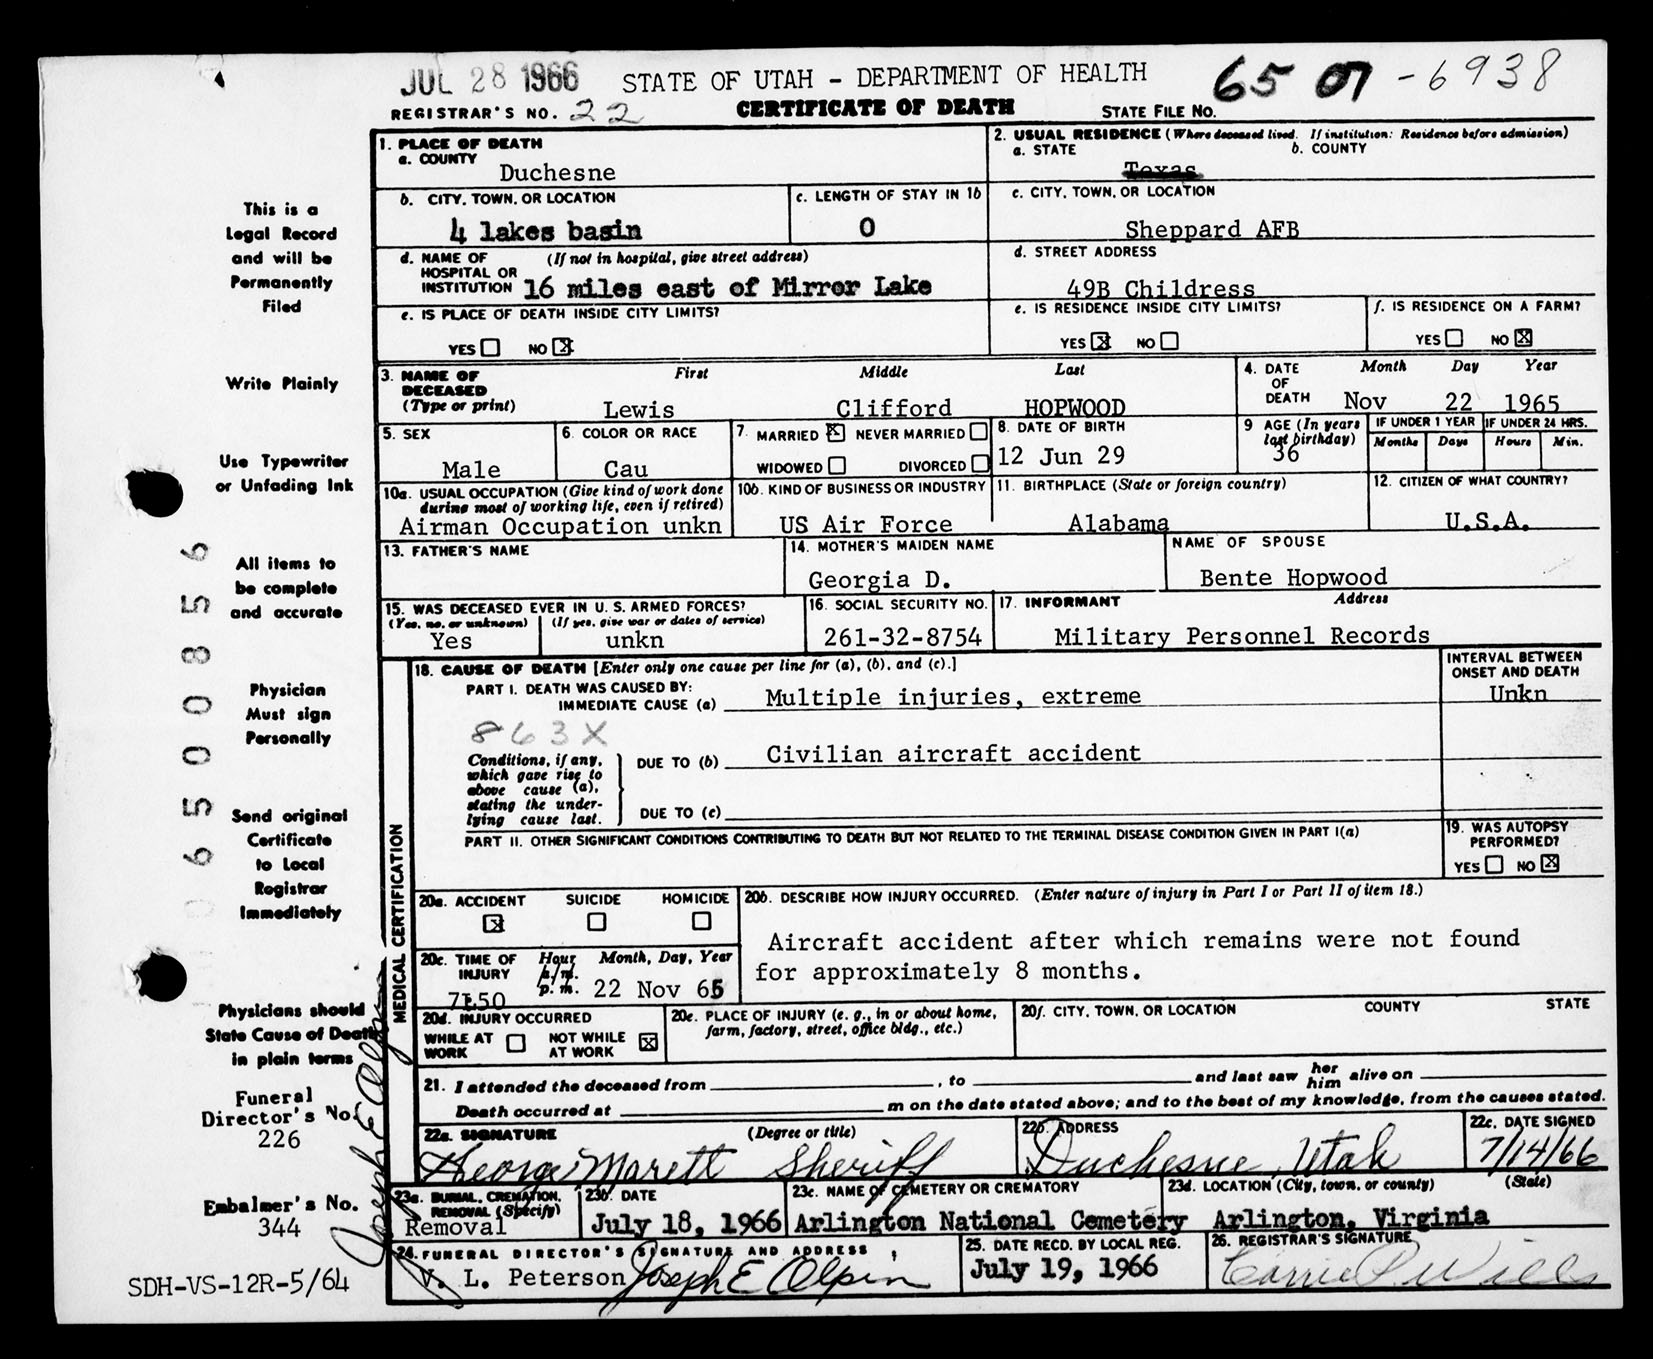 JUL 28 1966 STATE OF UTAH - DEPARTMENT OF HEALTH 65 07 - 6938
REGISTRAR'S NO. 22 CERTIFICATE OF DEATH STATE FILE NO.
1. PLACE OF DEATH
a. COUNTY
Duchesne
2. USUAL RESIDENCE (Where deceased lived. If institution: Residence before admission)
a. STATE b. COUNTY
Texas
b. CITY, TOWN, OR LOCATION
4 lakes basin
c. LENGTH OF STAY IN 1b
0
c. CITY, TOWN, OR LOCATION
Sheppard AFB
d. NAME OF (If not in hospital, give street address)
HOSPITAL OR
INSTITUTION 16 miles east of Mirror Lake
d. STREET ADDRESS
49B Childress
e. IS PLACE OF DEATH INSIDE CITY LIMITS?
YES NO X
e. IS RESIDENCE INSIDE CITY LIMITS?
YES X NO
f. IS RESIDENCE ON A FARM?
YES NO X
3. NAME OF DECEASED (Type or print)
First Middle Last
Lewis Clifford HOPWOOD
4. DATE OF DEATH
Month Day Year
Nov 22 1965
5. SEX
Male
6. COLOR OR RACE
Cau
7. MARRIED X NEVER MARRIED
WIDOWED DIVORCED
8. DATE OF BIRTH
12 Jun 29
9 AGE (In years last birthday)
36
IF UNDER 1 YEAR IF UNDER 24 HRS.
Months Days Hours Min.
10a. USUAL OCCUPATION (Give kind of work done
during most of working life, even if retired)
Airman Occupation unkn
10b. KIND OF BUSINESS OR INDUSTRY
US Air Force
11. BIRTHPLACE (State or foreign country)
Alabama
12. CITIZEN OF WHAT COUNTRY?
U.S.A.
13. FATHER'S NAME
14. MOTHER'S MAIDEN NAME
Georgia D.
NAME OF SPOUSE
Bente Hopwood
15. WAS DECEASED EVER IN U. S. ARMED FORCES?
(Yes, no, or unknown) (If yes, give war or dates of service)
Yes unkn
16. SOCIAL SECURITY NO.
261-32-8754
17. INFORMANT Address
Military Personnel Records
MEDICAL CERTIFICATION
18. CAUSE OF DEATH [Enter only one cause per line for (a), (b), and (c).]
INTERVAL BETWEEN
ONSET AND DEATH
PART I. DEATH WAS CAUSED BY:
IMMEDIATE CAUSE (a) Multiple injuries, extreme Unkn
863X
Conditions, if any,
which gave rise to
above cause (a),
stating the under-
lying cause last.
DUE TO (b) Civilian aircraft accident
DUE TO (c)
PART II. OTHER SIGNIFICANT CONDITIONS CONTRIBUTING TO DEATH BUT NOT RELATED TO THE TERMINAL DISEASE CONDITION GIVEN IN PART I(a)
19. WAS AUTOPSY
PERFORMED?
YES NO X
20a. ACCIDENT SUICIDE HOMICIDE
X
20b. DESCRIBE HOW INJURY OCCURRED. (Enter nature of injury in Part I or Part II of item 18.)
Aircraft accident after which remains were not found
for approximately 8 months.
20c. TIME OF INJURY
Hour Month, Day, Year
a.m.
p.m. 22 Nov 65
7:50
20d. INJURY OCCURRED
WHILE AT WORK NOT WHILE AT WORK X
20e. PLACE OF INJURY (e. g., in or about home,
farm, factory, street, office bldg., etc.)
20f. CITY, TOWN, OR LOCATION COUNTY STATE
21. I attended the deceased from , to and last saw her him alive on
Death occurred at m on the date stated above; and to the best of my knowledge, from the causes stated.
22a. SIGNATURE (Degree or title)
George Marett Sheriff
22b. ADDRESS
Duchesne, Utah
22c. DATE SIGNED
7/14/66
23a. BURIAL, CREMATION,
REMOVAL (Specify)
Removal
23b. DATE
July 18, 1966
23c. NAME OF CEMETERY OR CREMATORY
Arlington National Cemetery
23d. LOCATION (City, town, or county) (State)
Arlington, Virginia
24. FUNERAL DIRECTOR'S SIGNATURE AND ADDRESS
V. L. Peterson Joseph E Olpin
25. DATE RECD. BY LOCAL REG.
July 19, 1966
26. REGISTRAR'S SIGNATURE
Carrie P Wills
This is a
Legal Record
and will be
Permanently
Filed
Write Plainly
Use Typewriter
or Unfading Ink
All items to
be complete
and accurate
Physician
Must sign
Personally
Send original
Certificate
to Local
Registrar
Immediately
Physicians should
State Cause of Death
in plain terms
Funeral
Director's No.
226
Embalmer's No.
344
SDH-VS-12R-5/64
06500856
Joseph E Olpin